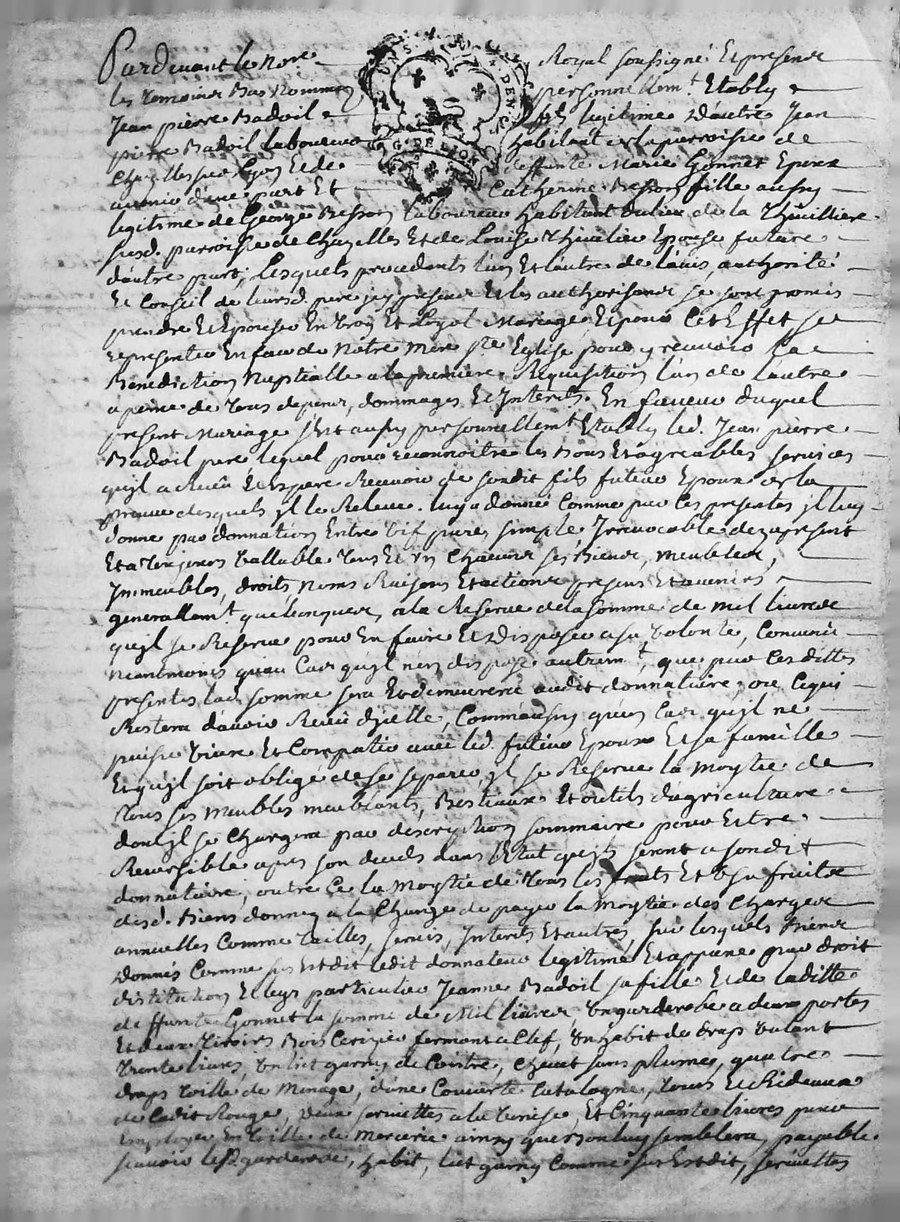 Pardevant le Nore Royal soussigné Et presens
les temoins Bas Nommez personnellemt Etably
Jean pierre Badoil fils legitime d'autre Jean
pierre Badoil Laboureur habitant en la parroisse de
Chazelles sur Lyon Et de deffunte Marie Gonnet Epoux
avenir d'une part Et Catherine Besson fille aussy
legitime de George Besson Laboureur habitant du lieu de la Thuilliere
susd. parroisse de Chazelles Et de Louise Thivilier Epouse future
d'autre part, Lesquels procedants l'un Et l'autre de l'avis, authorité
Et Conseil de leursd. pere jcy presens Et les authorisans se sont promis
prendre Et Epouser En vray Et Loyal Mariage Et pour Cet Effet se
representer En face de Notre Mere Ste Eglise pour y recevoir la
Benediction Nuptialle a la premiere Requisition l'un de l'autre
a peine de tous depens, dommages Et Interets. En faveur duquel
present Mariage s'Est aussy personnellemt Etably led. Jean pierre
Badoil pere lequel pour reconnoitre les Bons Et agreables services
qu'jl a Receu Et Espere Recevoir de sondit fils futeur Epoux de la
preuve desquels jl le Releve luy a donné Comme par les presentes jl luy
donne par donnation Entre vif pure, simple Irrevocable des a present
Et a Toujours Vallable Tous Et un Chacuns ses Biens, meubles,
Immeubles, droits, Noms Raisons Et actions presens Et avenirs
generallemt quelconques, a la Reserve de la somme de mil livres
qu'jl se Reserve pour En faire Et disposer a sa volonté, Convenu
neantmoins qu'au Cas qu'jl n'en dispose autremt, que par Ces dittes
presentes lad. somme sera Et demeurera audit donnataire, ou Ce qui
Restera d'avoir Receu d'jcelle, Comme aussy qu'au Cas qu'jl ne
puisse vivre Et Compatir avec led. futeur Epoux Et sa famille
Et qu'jl soit obligé de se separer, jl se Reserve la Moytié de
Tous ses Meubles meublants, Bestiaux Et outils d'agriculture
dont jl se Chargera par description sommaire pour Estre
Reversible apres son deceds dans l'Etat qu'jls seront a sondit
donnataire, outre Ce la Moytié de Tous les fruits Et Usufruits
desd. Biens donnez a la Charge de payer la Moytié des Charges
annuelles Comme Tailles, servis, Interets Et autres sur lesquels Biens
donnés Comme sus Est dit ledit donnateur legitime Et appane par droit
d'istitution Et legs particulier Jeanne Badoil sa fille Et de laditte
deffunte Gonnet la somme de Mil livres, un garderobe a deux portes
Et deux Tiroirs Bois Cerizier fermant a Clef, un habit de drap valant
Trente livres, un lit garny de Coitre, Chevet sans plumes, quatre
draps Toille de Menage, d'une Couverte Catalogne, Tours Et Rideaux
de Cadit Rouge, deux serviettes a la Venise, Et Cinquante livres pour
Employer En Toille de Mercerie ainsy que bon luy semblera, payable
scavoir lesd garderobe, habit, lit garny Comme sus Est dit, serviettes